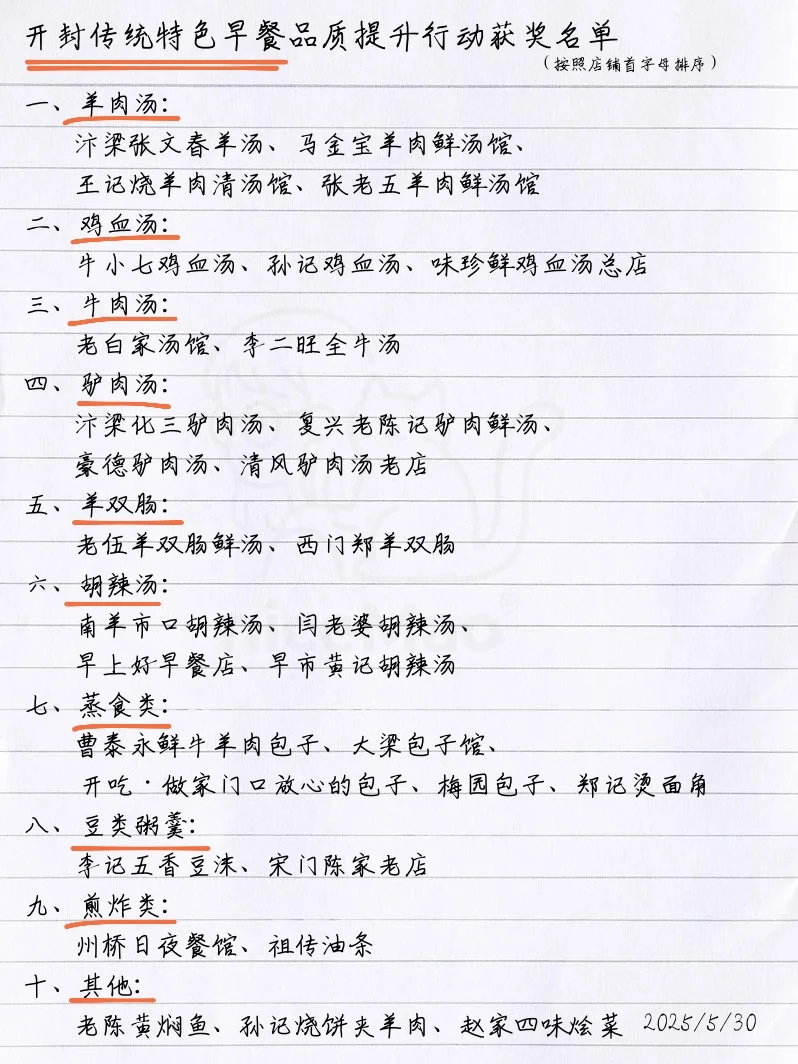 开封传统特色早餐品质提升行动获奖名单
（按照店铺首字母排序）
一、羊肉汤：
汴梁张文春羊汤、马金宝羊肉鲜汤馆、
王记烧羊肉清汤馆、张老五羊肉鲜汤馆
二、鸡血汤：
牛小七鸡血汤、孙记鸡血汤、味珍鲜鸡血汤总店
三、牛肉汤：
老白家汤馆、李二旺全牛汤
四、驴肉汤：
汴梁化三驴肉汤、复兴老陈记驴肉鲜汤、
豪德驴肉汤、清风驴肉汤老店
五、羊双肠：
老伍羊双肠鲜汤、西门郑羊双肠
六、胡辣汤：
南羊市口胡辣汤、闫老婆胡辣汤、
早上好早餐店、早市黄记胡辣汤
七、蒸食类：
曹泰永鲜牛羊肉包子、大梁包子馆、
开吃·做家门口放心的包子、梅园包子、郑记烫面角
八、豆类粥羹：
李记五香豆沫、宋门陈家老店
九、煎炸类：
州桥日夜餐馆、祖传油条
十、其他：
老陈黄焖鱼、孙记烧饼夹羊肉、赵家四味烩菜 2025/5/30